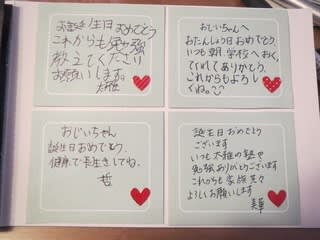 お誕生日おめでとう
これからも勉強
教えてください
お願いします。
おじいちゃんへ
おたんじょう日おめでとう。
いつも朝学校へおく
てくれてありがとう。
これからもよろし
くね。
おじいちゃん
誕生日おめでとう。
健康で長生きしてね。
哲
誕生日おめでとう
ございます
いつも太雅の塾や
勉強ありがとうございます
これからも家族共々
よろしくお願いします